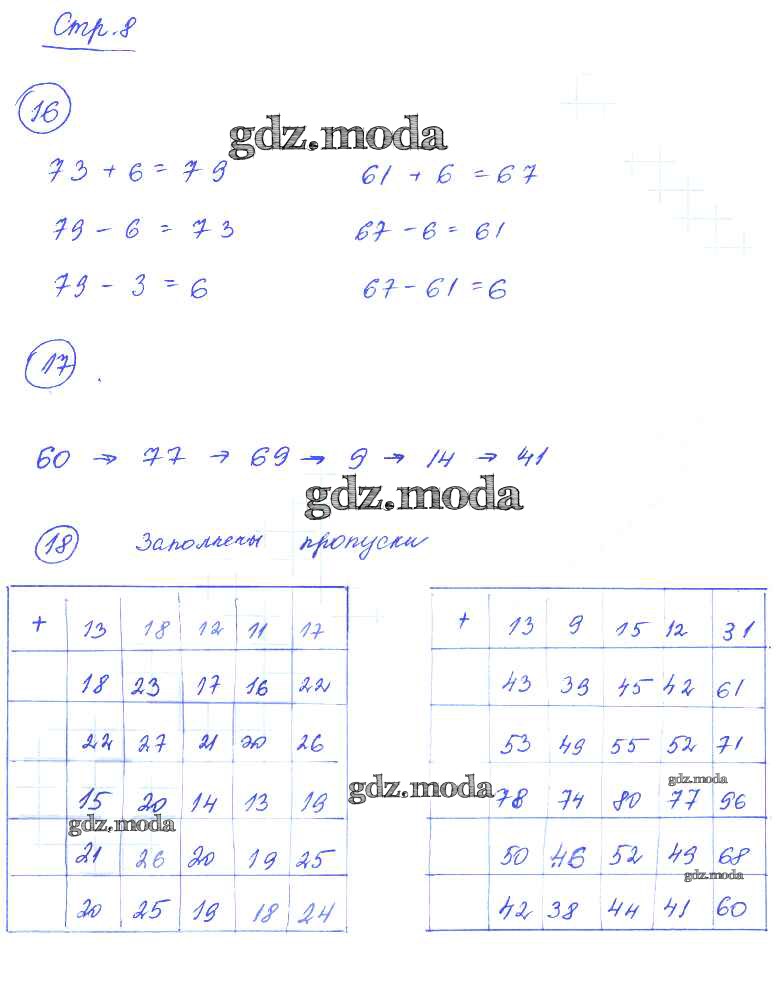 Стр. 8
16
gdz.moda
73 + 6 = 79 61 + 6 = 67
79 - 6 = 73 67 - 6 = 61
79 - 3 = 6 67 - 61 = 6
17.
60 → 77 → 69 → 9 → 14 → 41
gdz.moda
18 Заполнены пропуски
+ 13 18 12 11 17
18 23 17 16 22
22 27 21 20 26
15 20 14 13 19
gdz.moda
21 26 20 19 25
20 25 19 18 24
gdz.moda
+ 13 9 15 12 31
43 39 45 42 61
53 49 55 52 71
gdz.moda
78 74 80 77 96
50 46 52 49 68
gdz.moda
42 38 44 41 60